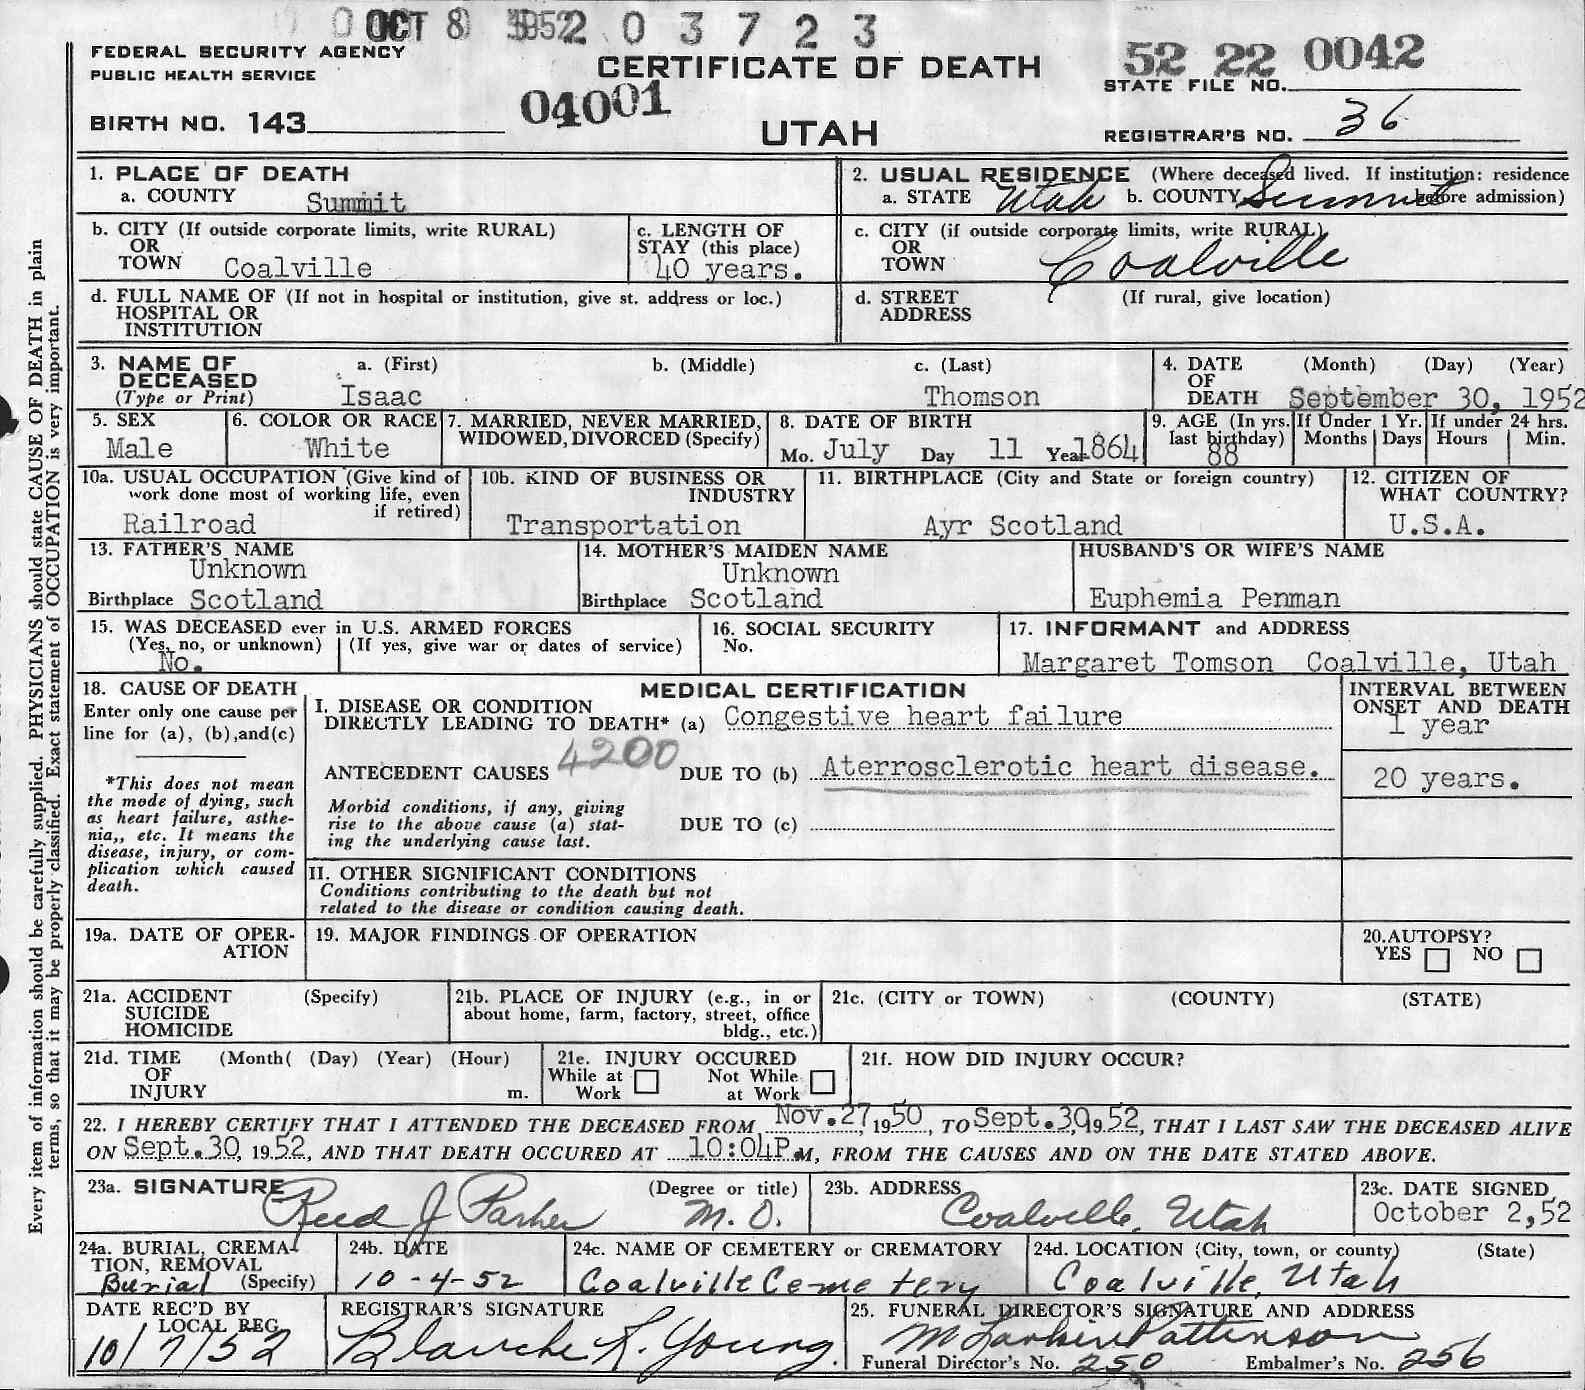 OCT 8 1952 2 0 3 7 2 3
FEDERAL SECURITY AGENCY
PUBLIC HEALTH SERVICE
CERTIFICATE OF DEATH
52 22 0042
STATE FILE NO.
04001
BIRTH NO. 143
UTAH
REGISTRAR'S NO. 36
1. PLACE OF DEATH
a. COUNTY Summit
2. USUAL RESIDENCE (Where deceased lived. If institution: residence
a. STATE Utah b. COUNTY Summit before admission)
b. CITY (If outside corporate limits, write RURAL)
OR
TOWN Coalville
c. LENGTH OF
STAY (this place)
40 years.
c. CITY (if outside corporate limits, write RURAL)
OR
TOWN Coalville
d. FULL NAME OF (If not in hospital or institution, give st. address or loc.)
HOSPITAL OR
INSTITUTION
d. STREET (If rural, give location)
ADDRESS
3. NAME OF a. (First) b. (Middle) c. (Last)
DECEASED
(Type or Print) Isaac Thomson
4. DATE (Month) (Day) (Year)
OF
DEATH September 30, 1952
5. SEX
Male
6. COLOR OR RACE
White
7. MARRIED, NEVER MARRIED,
WIDOWED, DIVORCED (Specify)
8. DATE OF BIRTH
Mo. July Day 11 Year 1864
9. AGE (In yrs.
last birthday)
88
If Under 1 Yr.
Months Days
If under 24 hrs.
Hours Min.
10a. USUAL OCCUPATION (Give kind of
work done most of working life, even
if retired)
Railroad
10b. KIND OF BUSINESS OR
INDUSTRY
Transportation
11. BIRTHPLACE (City and State or foreign country)
Ayr Scotland
12. CITIZEN OF
WHAT COUNTRY?
U.S.A.
13. FATHER'S NAME
Unknown
Birthplace Scotland
14. MOTHER'S MAIDEN NAME
Unknown
Birthplace Scotland
HUSBAND'S OR WIFE'S NAME
Euphemia Penman
15. WAS DECEASED ever in U.S. ARMED FORCES
(Yes, no, or unknown) (If yes, give war or dates of service)
No.
16. SOCIAL SECURITY
No.
17. INFORMANT and ADDRESS
Margaret Tomson Coalville, Utah
18. CAUSE OF DEATH
Enter only one cause per
line for (a), (b), and (c)
*This does not mean
the mode of dying, such
as heart failure, asthe-
nia,, etc. It means the
disease, injury, or com-
plication which caused
death.
MEDICAL CERTIFICATION
I. DISEASE OR CONDITION
DIRECTLY LEADING TO DEATH* (a) Congestive heart failure
4200
ANTECEDENT CAUSES DUE TO (b) Aterrosclerotic heart disease.
Morbid conditions, if any, giving
rise to the above cause (a) stat-
ing the underlying cause last.
DUE TO (c)
II. OTHER SIGNIFICANT CONDITIONS
Conditions contributing to the death but not
related to the disease or condition causing death.
INTERVAL BETWEEN
ONSET AND DEATH
1 year
20 years.
19a. DATE OF OPER-
ATION
19. MAJOR FINDINGS OF OPERATION
20. AUTOPSY?
YES NO
21a. ACCIDENT (Specify)
SUICIDE
HOMICIDE
21b. PLACE OF INJURY (e.g., in or
about home, farm, factory, street, office
bldg., etc.)
21c. (CITY or TOWN) (COUNTY) (STATE)
21d. TIME (Month( (Day) (Year) (Hour)
OF
INJURY m.
21e. INJURY OCCURED
While at Not While
Work at Work
21f. HOW DID INJURY OCCUR?
22. I HEREBY CERTIFY THAT I ATTENDED THE DECEASED FROM Nov. 27, 1950, TO Sept. 30, 1952, THAT I LAST SAW THE DECEASED ALIVE
ON Sept. 30, 1952, AND THAT DEATH OCCURED AT 10:04P.M, FROM THE CAUSES AND ON THE DATE STATED ABOVE.
23a. SIGNATURE (Degree or title)
Reed J Parker M.D.
23b. ADDRESS
Coalville, Utah
23c. DATE SIGNED
October 2, 52
24a. BURIAL, CREMA-
TION, REMOVAL
Burial (Specify)
24b. DATE
10-4-52
24c. NAME OF CEMETERY or CREMATORY
Coalville Cemetery
24d. LOCATION (City, town, or county) (State)
Coalville, Utah
DATE REC'D BY
LOCAL REG.
10/7/52
REGISTRAR'S SIGNATURE
Blanche R. Young
25. FUNERAL DIRECTOR'S SIGNATURE AND ADDRESS
M Larkin Pattinson
Funeral Director's No. 250 Embalmer's No. 256
Every item of information should be carefully supplied. PHYSICIANS should state CAUSE OF DEATH in plain
terms, so that it may be properly classified. Exact statement of OCCUPATION is very important.